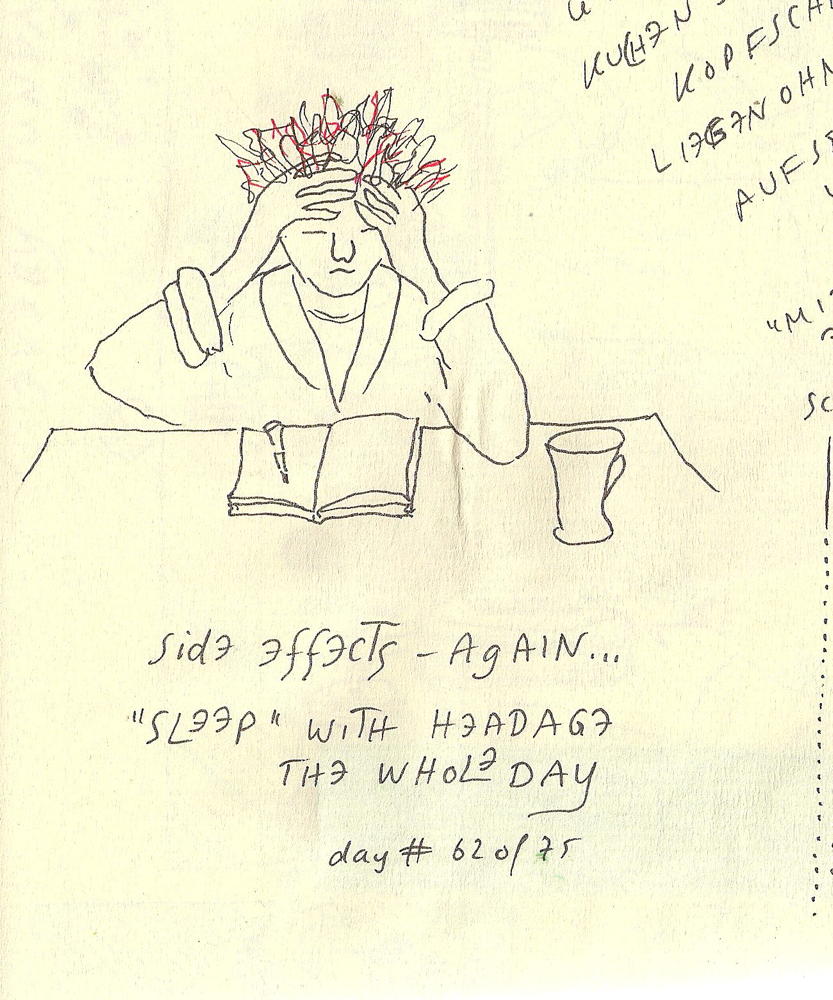 KUCHEN
KOPFSCH
LIEGEN OHN
AUFS
"MI
SC
Side EffECTS - AgAIN...
"SLEEP" WITH HEADAGE
THE WHOLE DAY
day # 62 of 75